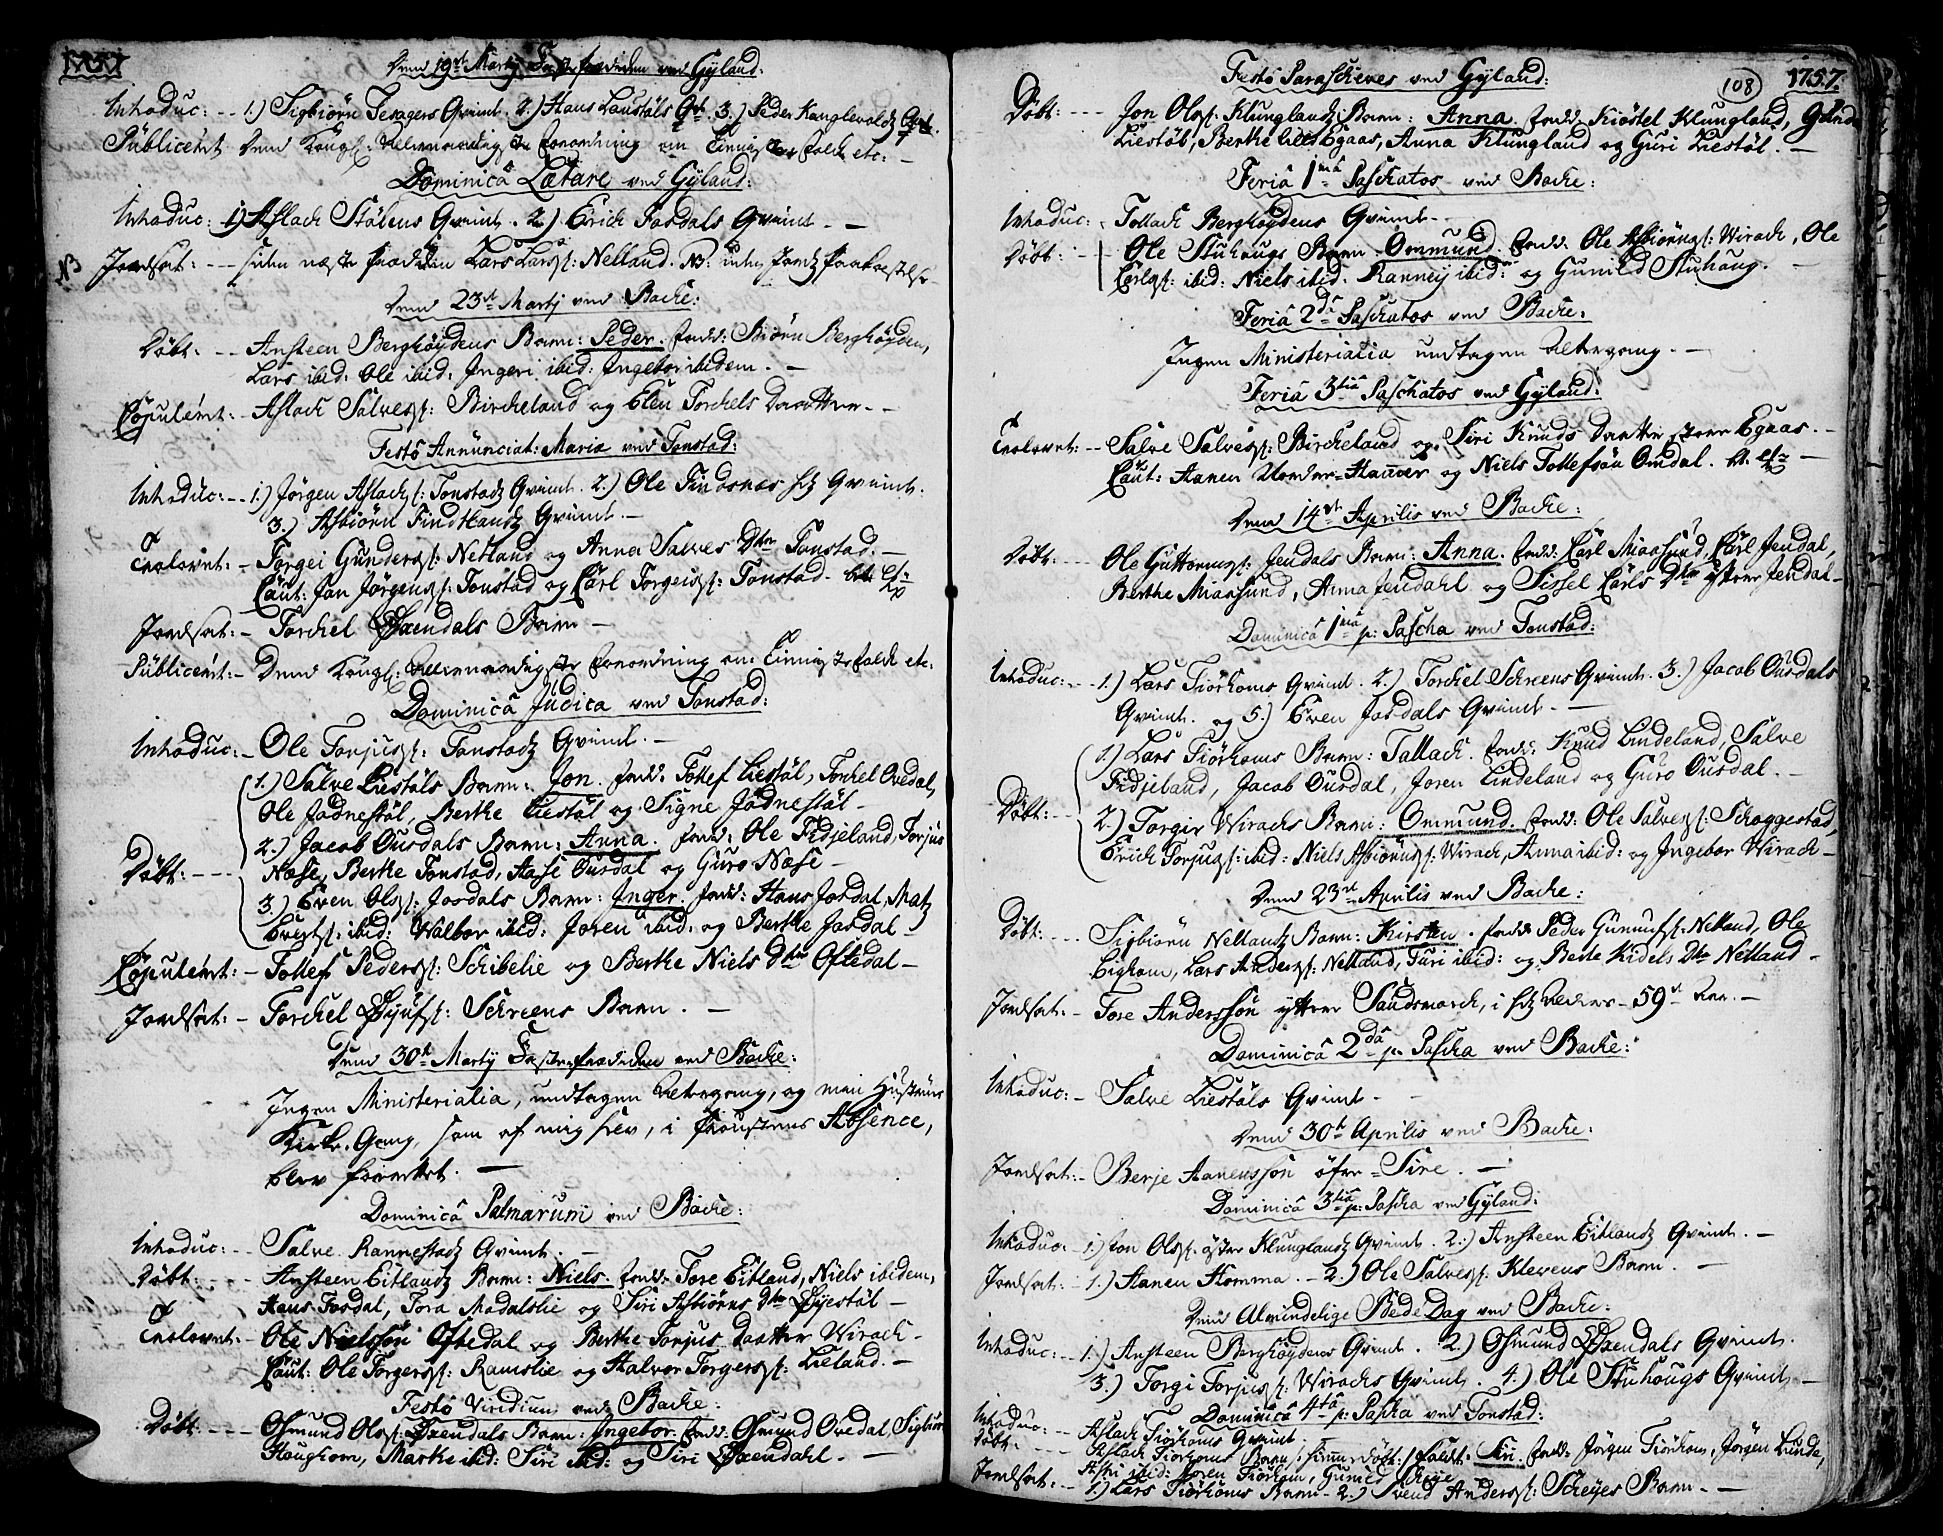 1757
Dend 19de Martij Fasteprædiken ved Gyland:
Introduc: - - 1.) Sigbiörn Tesagers Qvind. 2.) Hans Laustöls Qv. 3.) Peder Kanglevolds Qv.
Publiceret Dend Kongl: Allernaadigste Forordning om etc: -
Dominica Lætare ved Gyland:
Introduc: 1.) Aslach Stölens Qvind. 2.) Erich Josdals Qvind - -
NB Jordsat: - - siden næste Prædiken Lars Larss: Netland. NB: uden Jords Paakastelse
Dend 23de Martij ved Backe:
Döbt: - - Ansteen Berghöydens Barn: Peder. Fadd: Biörn Berghöyden,
Lars ibid: Ole ibid: Ingeri ibid: Ingebor ibidem. -
Copuleret: - Aslach Salvess: Bircheland og Elen Torchels Daatter - -
Festo Annunciat: Mariæ ved Tonstad:
Introduc: - - 1.) Jörgen Aslachs: Tonstads Qvind. 2.) Ole Findesnes sts Qvind.
3.) Asbiörn Findtlands Qvind. -
Troloved: - Torgei Gunders: Netland og Anna Salves Dter Tonstad. -
Caut: Jan Jörgens: Tonstad og Carl Torgeis: Tonstad -
Jordsat: - Torchel Öxendals Barn -
Publiceret: - Dend Kongl: Allernaadigste Forordning om etc:
Dominica Judica ved Tonstad:
Introduc: - Ole Torjuss: Tonstads Qvind. -
1.) Salve Liestöls Barn: Jon. Fadd: Tollef Liestöl, Torchel Ovedal,
Ole Jödnestöl, Berthe Liestöl og Signe Jödnestöl -
2.) Jacob Ousdals Barn: Anna. Fadd: Ole Fidjeland, Torjus
Döbt: - - - Næse, Berthe Tonstad, Aase Ousdal og Guro Næse -
3.) Even Ols: Josdals Barn: Inger. Fadd: Hans Josdal, Mats
Evens: ibid: Walbor ibid: Joren ibid: og Berthe Josdal -
Copuleret: - Tollef Peders: Schibelie og Berthe Niels Dter Oftedal -
Jordsat: - Torchel Öyufs: Schreens Barn. -
Dend 30te Martij Fasteprædiken ved Backe:
Ingen Ministerialia, undtagen Altergang, og min Hustrues
Kirke-Gang, som af mig selv, i Provstens Absence,
blev forrettet. -
Dominica Palmarum ved Backe:
Introduc: - - Salve Rannestads Qvind. -
Döbt: - - - Ansteen Eitlands Barn: Niels. Fadd: Tore Eitland, Niels ibidem,
Hans Josdal, Tora Modalslie og Siri Asbiörns Dter Öyestöl -
Troloved: - Ole Nielssön Oftedal og Berthe Torjus Daatter Wirach -
Caut: Ole Torgers: Ramslie og Halvor Torgers: Lieland. -
Festo Viridium ved Backe:
Döbt: - - - Osmund Ols: Öxendals Barn: Ingebor. Fadd: Osmund Ovedal Sigbiör
Houghom, Marthe ibid: Siri ibid: og Siri Öxendahl. -
Festo Parasceves ved Gyland:
108
1757.
Döbt: - - - Jon Ols: Klunglands Barn: Anna. Fadd: Kiöstel Klungland, Gunder
Liestöl, Berthe lille Egaas, Anna Klungland og Guri Liestöl. -
Feria 1ma Paschatos ved Backe:
Introduc: - Tollach Berghöydens Qvind - -
Döbt: - - Ole Stuhougs Barn Ommund. Fadd: Ole Asbiörns: Wirach, Ole
Carls: ibid: Niels ibid: Ranney ibid: og Gunild Stuhoug. -
Feria 2da Paschatos ved Backe:
Ingen Ministerialia undtagen Altergang - -
Feria 3tia Paschatos ved Gyland:
Troloved: - - Salve Salvess: Bircheland og Siri Knuds Daatter store Egaas. -
Caut: Aanen Nordre-Hanver og Niels Tollefsön Omdal. -
Dend 14de Aprilis ved Backe:
Döbt: - - - Ole Guttorms: Jendals Barn: Anna. Fadd: Carl Miaasund, Carl Jendal,
Berthe Miaasund, Anna Jendahl og Sissel Carls Dter ystere Jendal -
Dominica 1ma p: Pascha ved Tonstad:
Introduc: - - 1.) Lars Tiörhoms Qvind. 2.) Torchel Schreens Qvind. 3.) Jacob Ousdals
Qvind. og 5.) Even Josdals Qvind - -
1.) Lars Tiörhoms Barn: Tallach. Fadd: Knud Lindeland, Salve
Fidjeland, Jacob Ousdal, Joren Lindeland og Guro Ousdal. -
Döbt: - - 2.) Torgier Wirachs Barn: Ommund. Fadd: Ole Salvess: Schaggestad,
Erich Torjuss: ibid: Niels Asbiörns: Wirach, Anna ibid: og Ingebor Wirach -
Dend 23de Aprilis ved Backe:
Döbt: - - - Sigbiörn Netlands Barn: Kirsten. Fadd: Peder Gunnufs: Netland, Ole
Eighom, Lars Anders: Netland, Turi ibid: og Berte Kidels Dter Netland -
Jordsat: - Tore Anderssön yttere Sandsmarck, i sts Alders - 59de Aar. -
Dominica 2da p: Pascha ved Backe:
Introduc: - Salve Liestöls Qvind - -
Dend 30te Aprilis ved Backe:
Jordsat: - Berje Aanenssön öfre-Sire. -
Dominica 3tia p: Pascha ved Gyland:
Introduc: - 1.) Jon Ols: öster Klunglands Qvind. 2.) Ansteen Eitlands Qvind. -
Jordsat: - 1.) Aanen Homma. - 2.) Ole Salvess: Klevens Barn. -
Dend Almindelige Bede Dag ved Backe:
Introduc: - - 1.) Ansteen Berghöydens Qvind. 2.) Osmund Öxendals Qvind.
3.) Torgi Torjuss: Wirachs Qvind. 4.) Ole Stuhougs Qvind -
Dominica 4ta p: Pascha ved Tonstad:
Introduc: - - Aslach Tiörhoms Qvind. -
Döbt: - - - Aslach Tiörhoms Barn /: hiemmedöbt :/ kaldt: Siri. Fadd: Jörgen Tiörhom, Jörgen Linde,
ibid: Joren Tiörhom, Gunild
Jordsat: - - 1.) Lars Tiörhoms Barn - 2.) Svend Anders: Scheyes Barn. - -